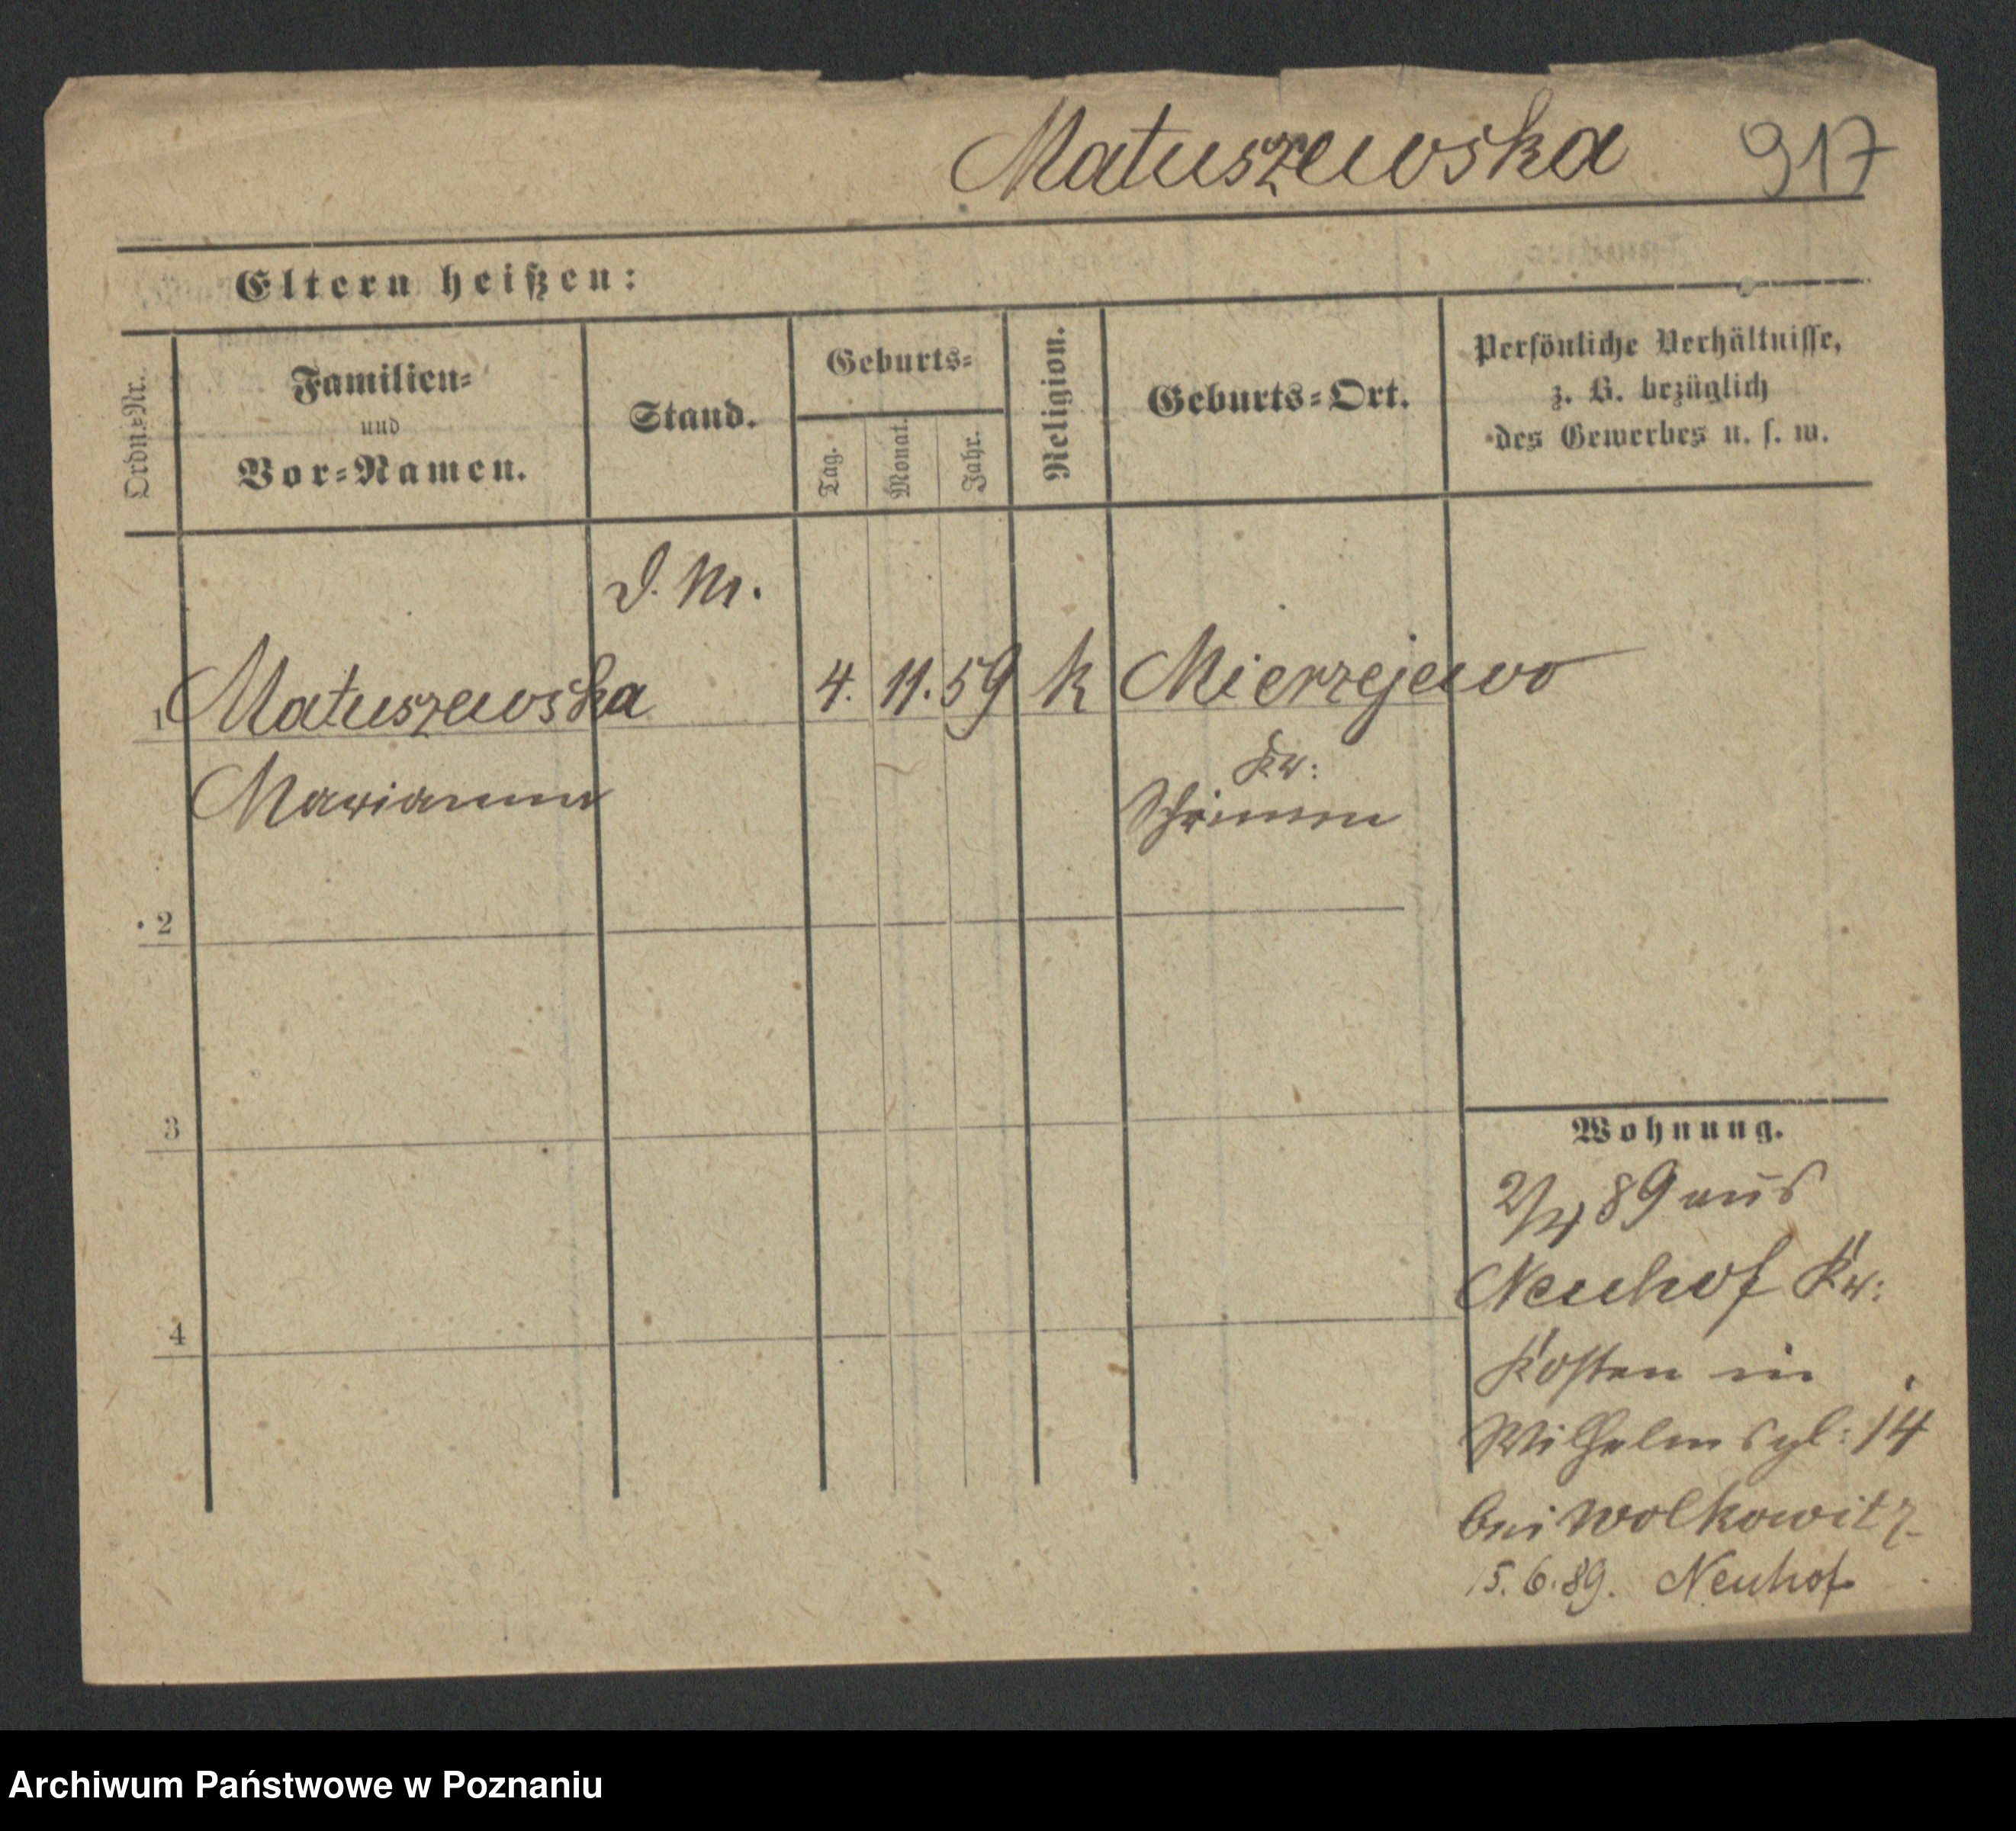 Matuszewska 917
Eltern heißen:
Ordn.-Nr.
Familien-
und
Vor-Namen.
Stand.
Geburts-
Tag.
Monat.
Jahr.
Religion.
Geburts-Ort.
Persönliche Verhältnisse,
z. B. bezüglich
des Gewerbes u. s. w.
D. M.
1 Matuszewska 4. 11. 59 k Mierzejewo
Marianna
Kr:
Schrimm
2
3
4
Wohnung.
2/4 89 aus
Neuhof Kr:
Kosten in
Wilhelmspl: 14
bei Wolkowitz
15. 6. 89. Neuhof
Archiwum Państwowe w Poznaniu